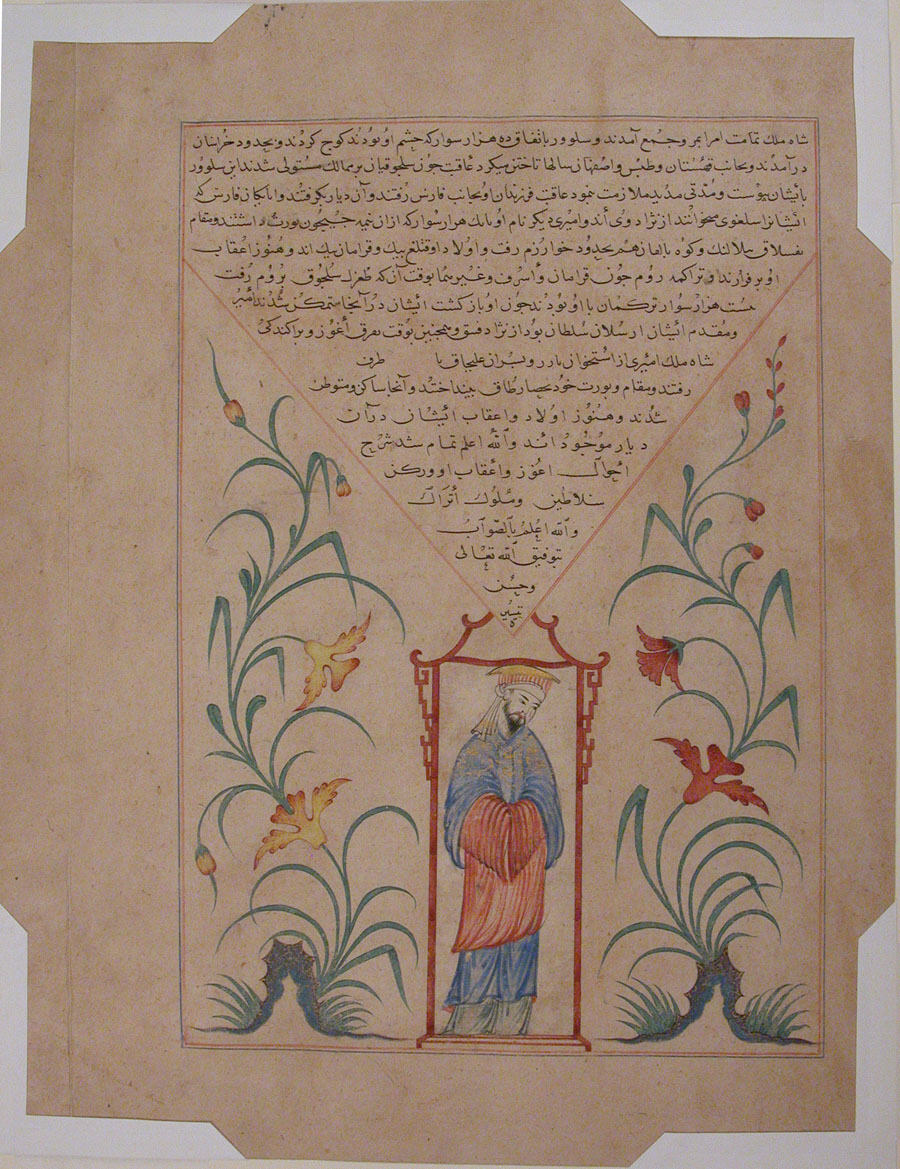 شاه ملك تمامت امرا بمر و جمع آمدند و سلوور باتفاق ده هزار سوار كه حشم او بودند كوچ كردند و بحدود خراسان
درآمدند و بجانب قهستان و طبس و اصفهان سالها تاختن ميكرد عاقبت چون سلجوقيان بر ممالك مستولى شدند ابن سلوور
بايشان پيوست و مدتى مديد ملازمت نمود عاقبت فرزندان او بجانب فارس رفتند و آن ديار بگرفتند و اتابكان فارس كه
ايشانرا سلغرى ميخوانند از نژاد وى اند و اميرى ديكر نام او با هزار سوار كه از ان جيحون يورت داشتند و مقام
و كوه هم بحدود خوارزم رفت و اولاد او قتلغ بيك و قرامان بيك اند و هنوز اعقاب
او برقرارند و تراكمه روم چون قرامان و اشرف و غيرهما بوقت آن كه طغرل سلجوق بروم رفت
بيست هزار سوار تركمان با او بودند چون او بازكشت ايشان در آنجا متمكن شدند امير
و مقدم ايشان ارسلان سلطان بود از نژاد قنق و همچنين بوقت تفرق اغوز و پراكندكى
شاه ملك اميرى از استخوان با دو پسر از با طرف
رفتند و مقام و يورت خود بحصار طاق بينداختند و آنجا ساكن و متوطن
شدند و هنوز اولاد و اعقاب ايشان در آن
ديار موجود اند والله اعلم تمام شد شرح
احوال اغوز و اعقاب او و ذكر
سلاطين و ملوك أتراك
والله اعلم بالصواب
بتوفيق الله تعالى
و حسن
تيسيره